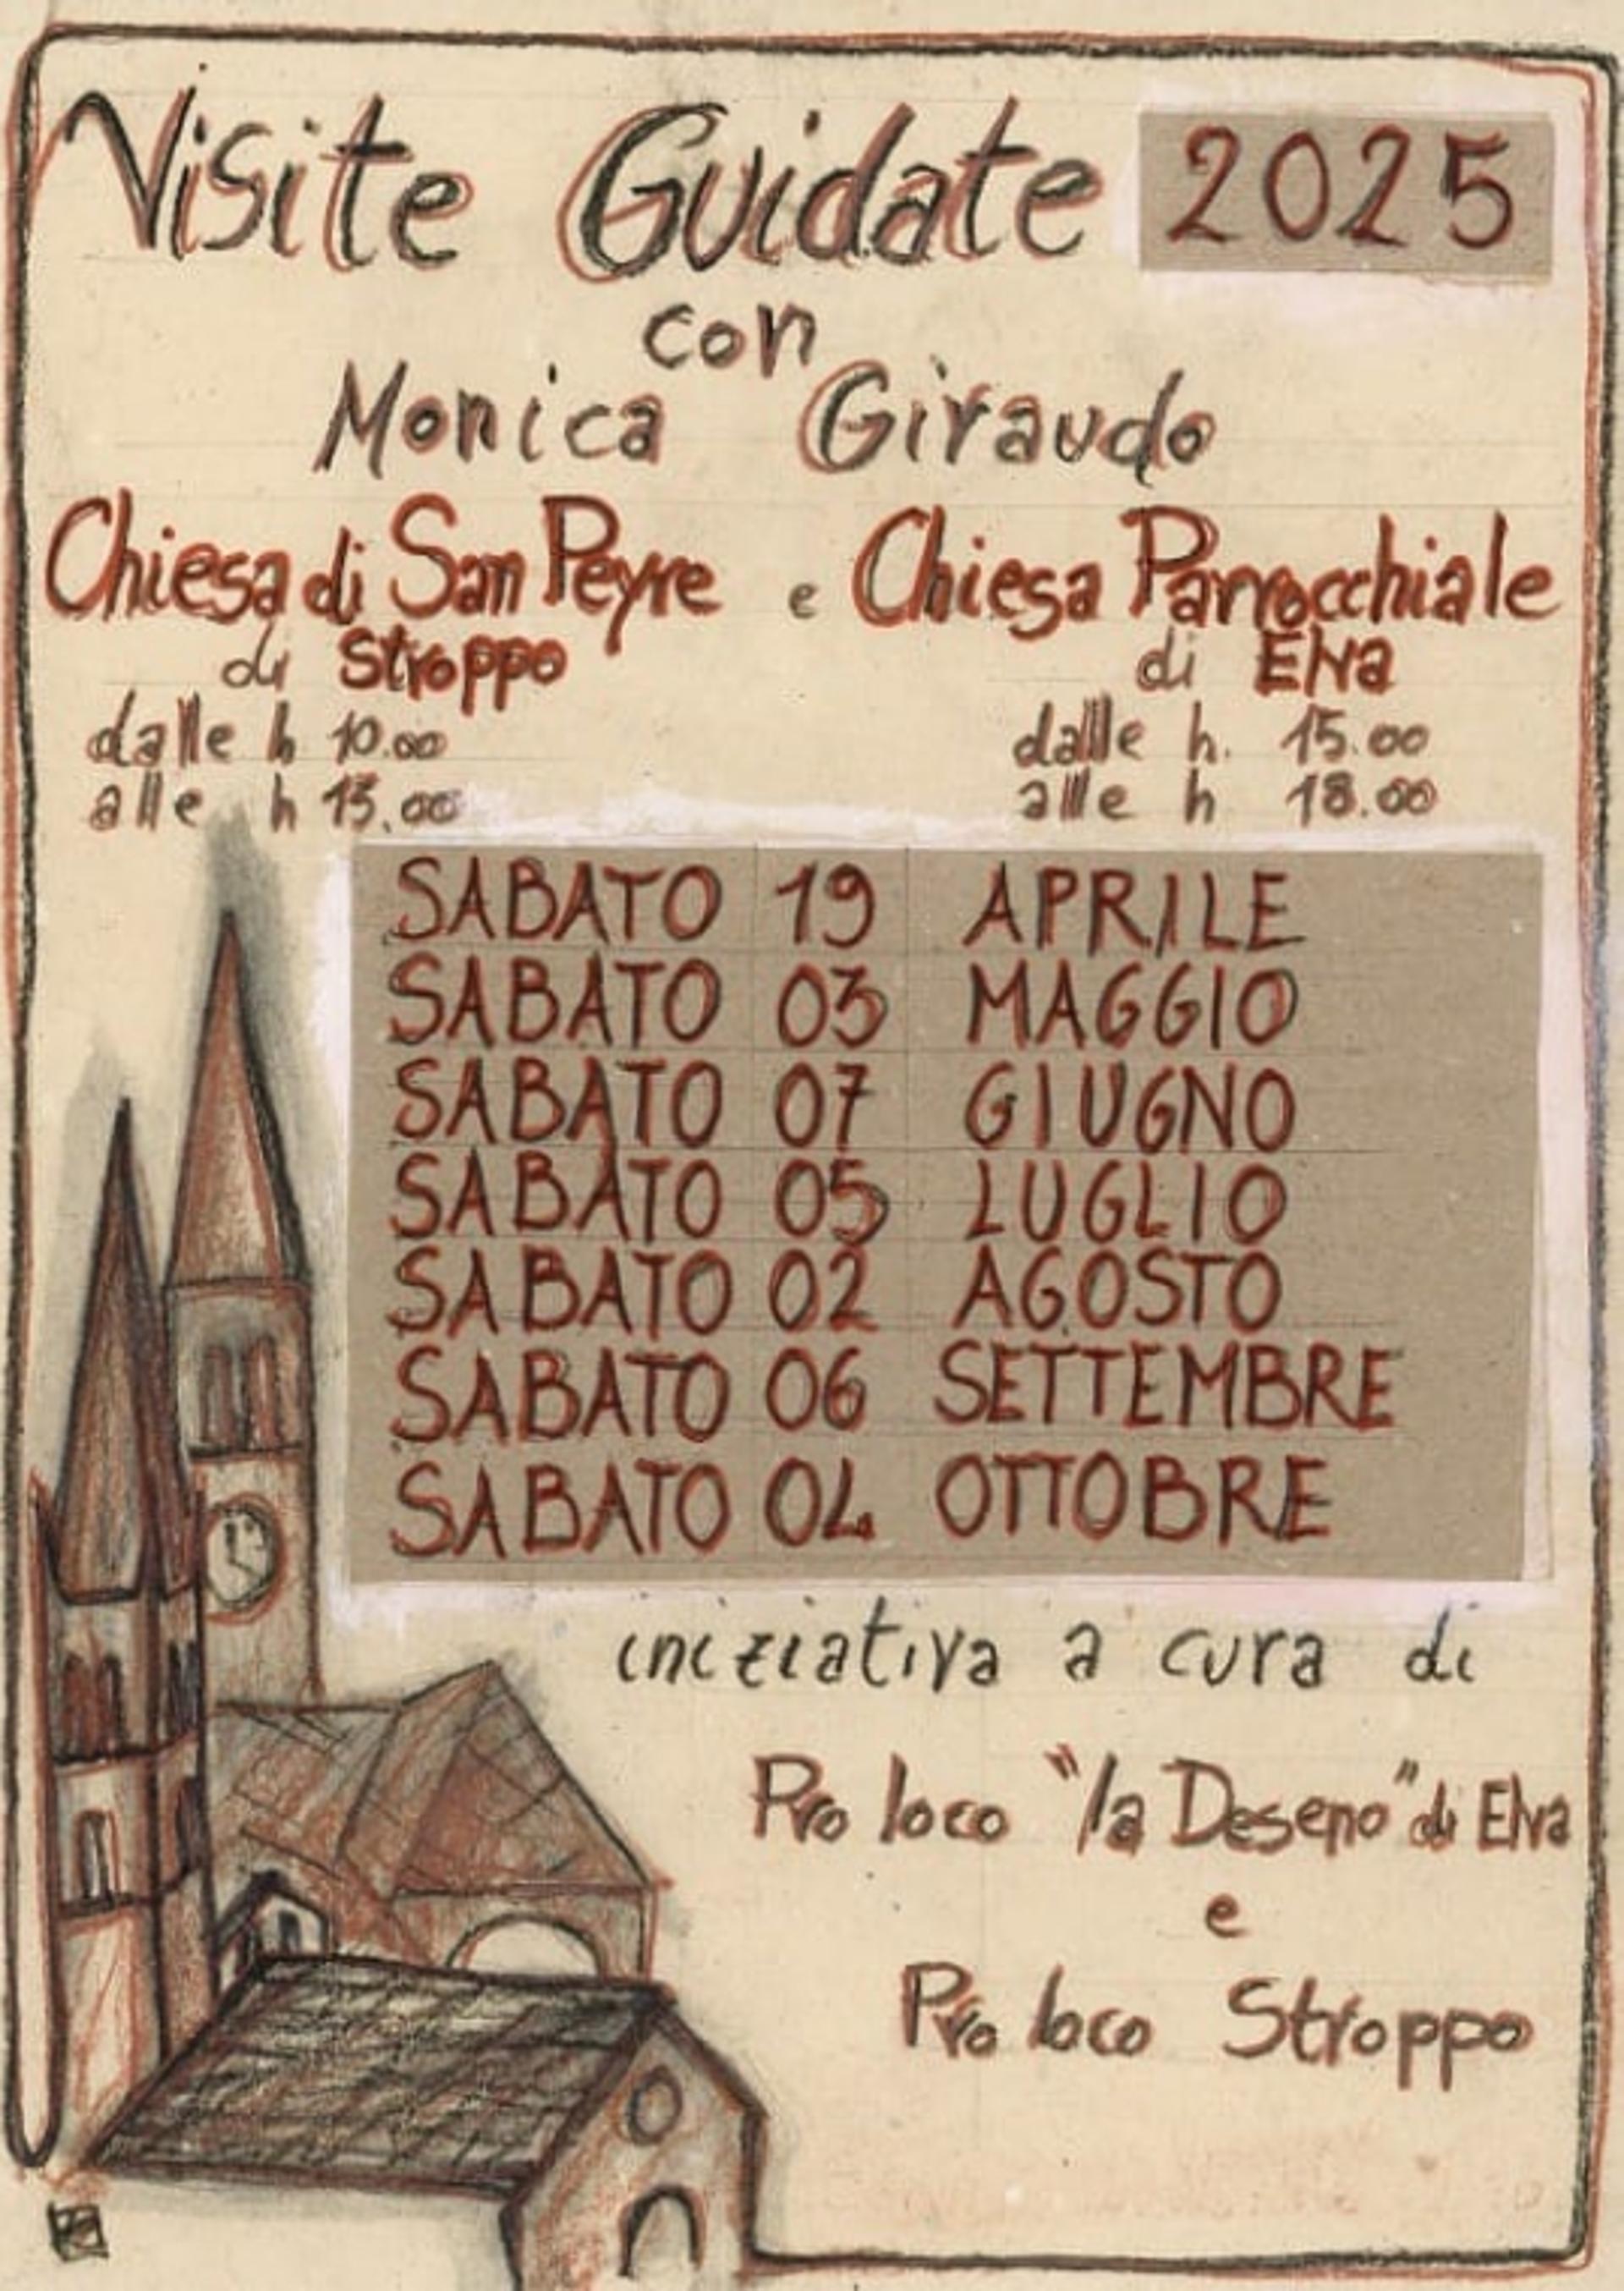 Visite Guidate 2025
con
Monica Giraudo
Chiesa di San Peyre e Chiesa Parrocchiale
di Stroppo
di Elva
dalle h 10.00
alle h 13.00
dalle h. 15.00
alle h 18.00
SABATO 19 APRILE
SABATO 03 MAGGIO
SABATO 07 GIUGNO
SABATO 05 LUGLIO
SABATO 02 AGOSTO
SABATO 06 SETTEMBRE
SABATO 04 OTTOBRE
iniziativa a cura di
Pro loco "la Deseno" di Elva
e
Pro loco Stroppo